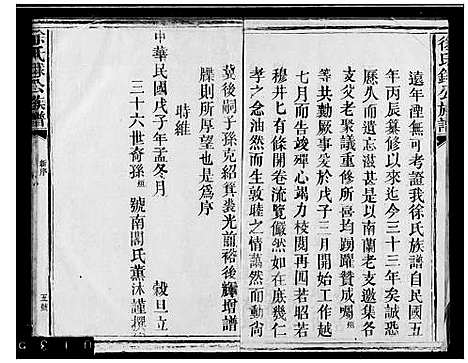 徐氏錦公族譜
遠年湮無可考證我徐氏族譜自民國五
年丙辰纂修以來迄今三十三年矣誠恐
歷久而遺忘滋甚是以南蘭老支邀集各
支父老聚議重修所喜均踴躍贊成囑
共動厥事爰於戊子三月開始工作越
七月而告竣殫心竭力校閱再四若昭若
穆井七有條開卷流覽儼然如在庶幾仁
孝之念油然而生敦睦之情藹然而動尚
冀後嗣子孫克紹箕裘光前裕後輝增譜
牒則所厚望也是為序
時維
中華民國戊子年孟冬月 穀旦立
三十六世奇孫 號南閣氏薰沐謹撰
徐氏錦公族譜
新序